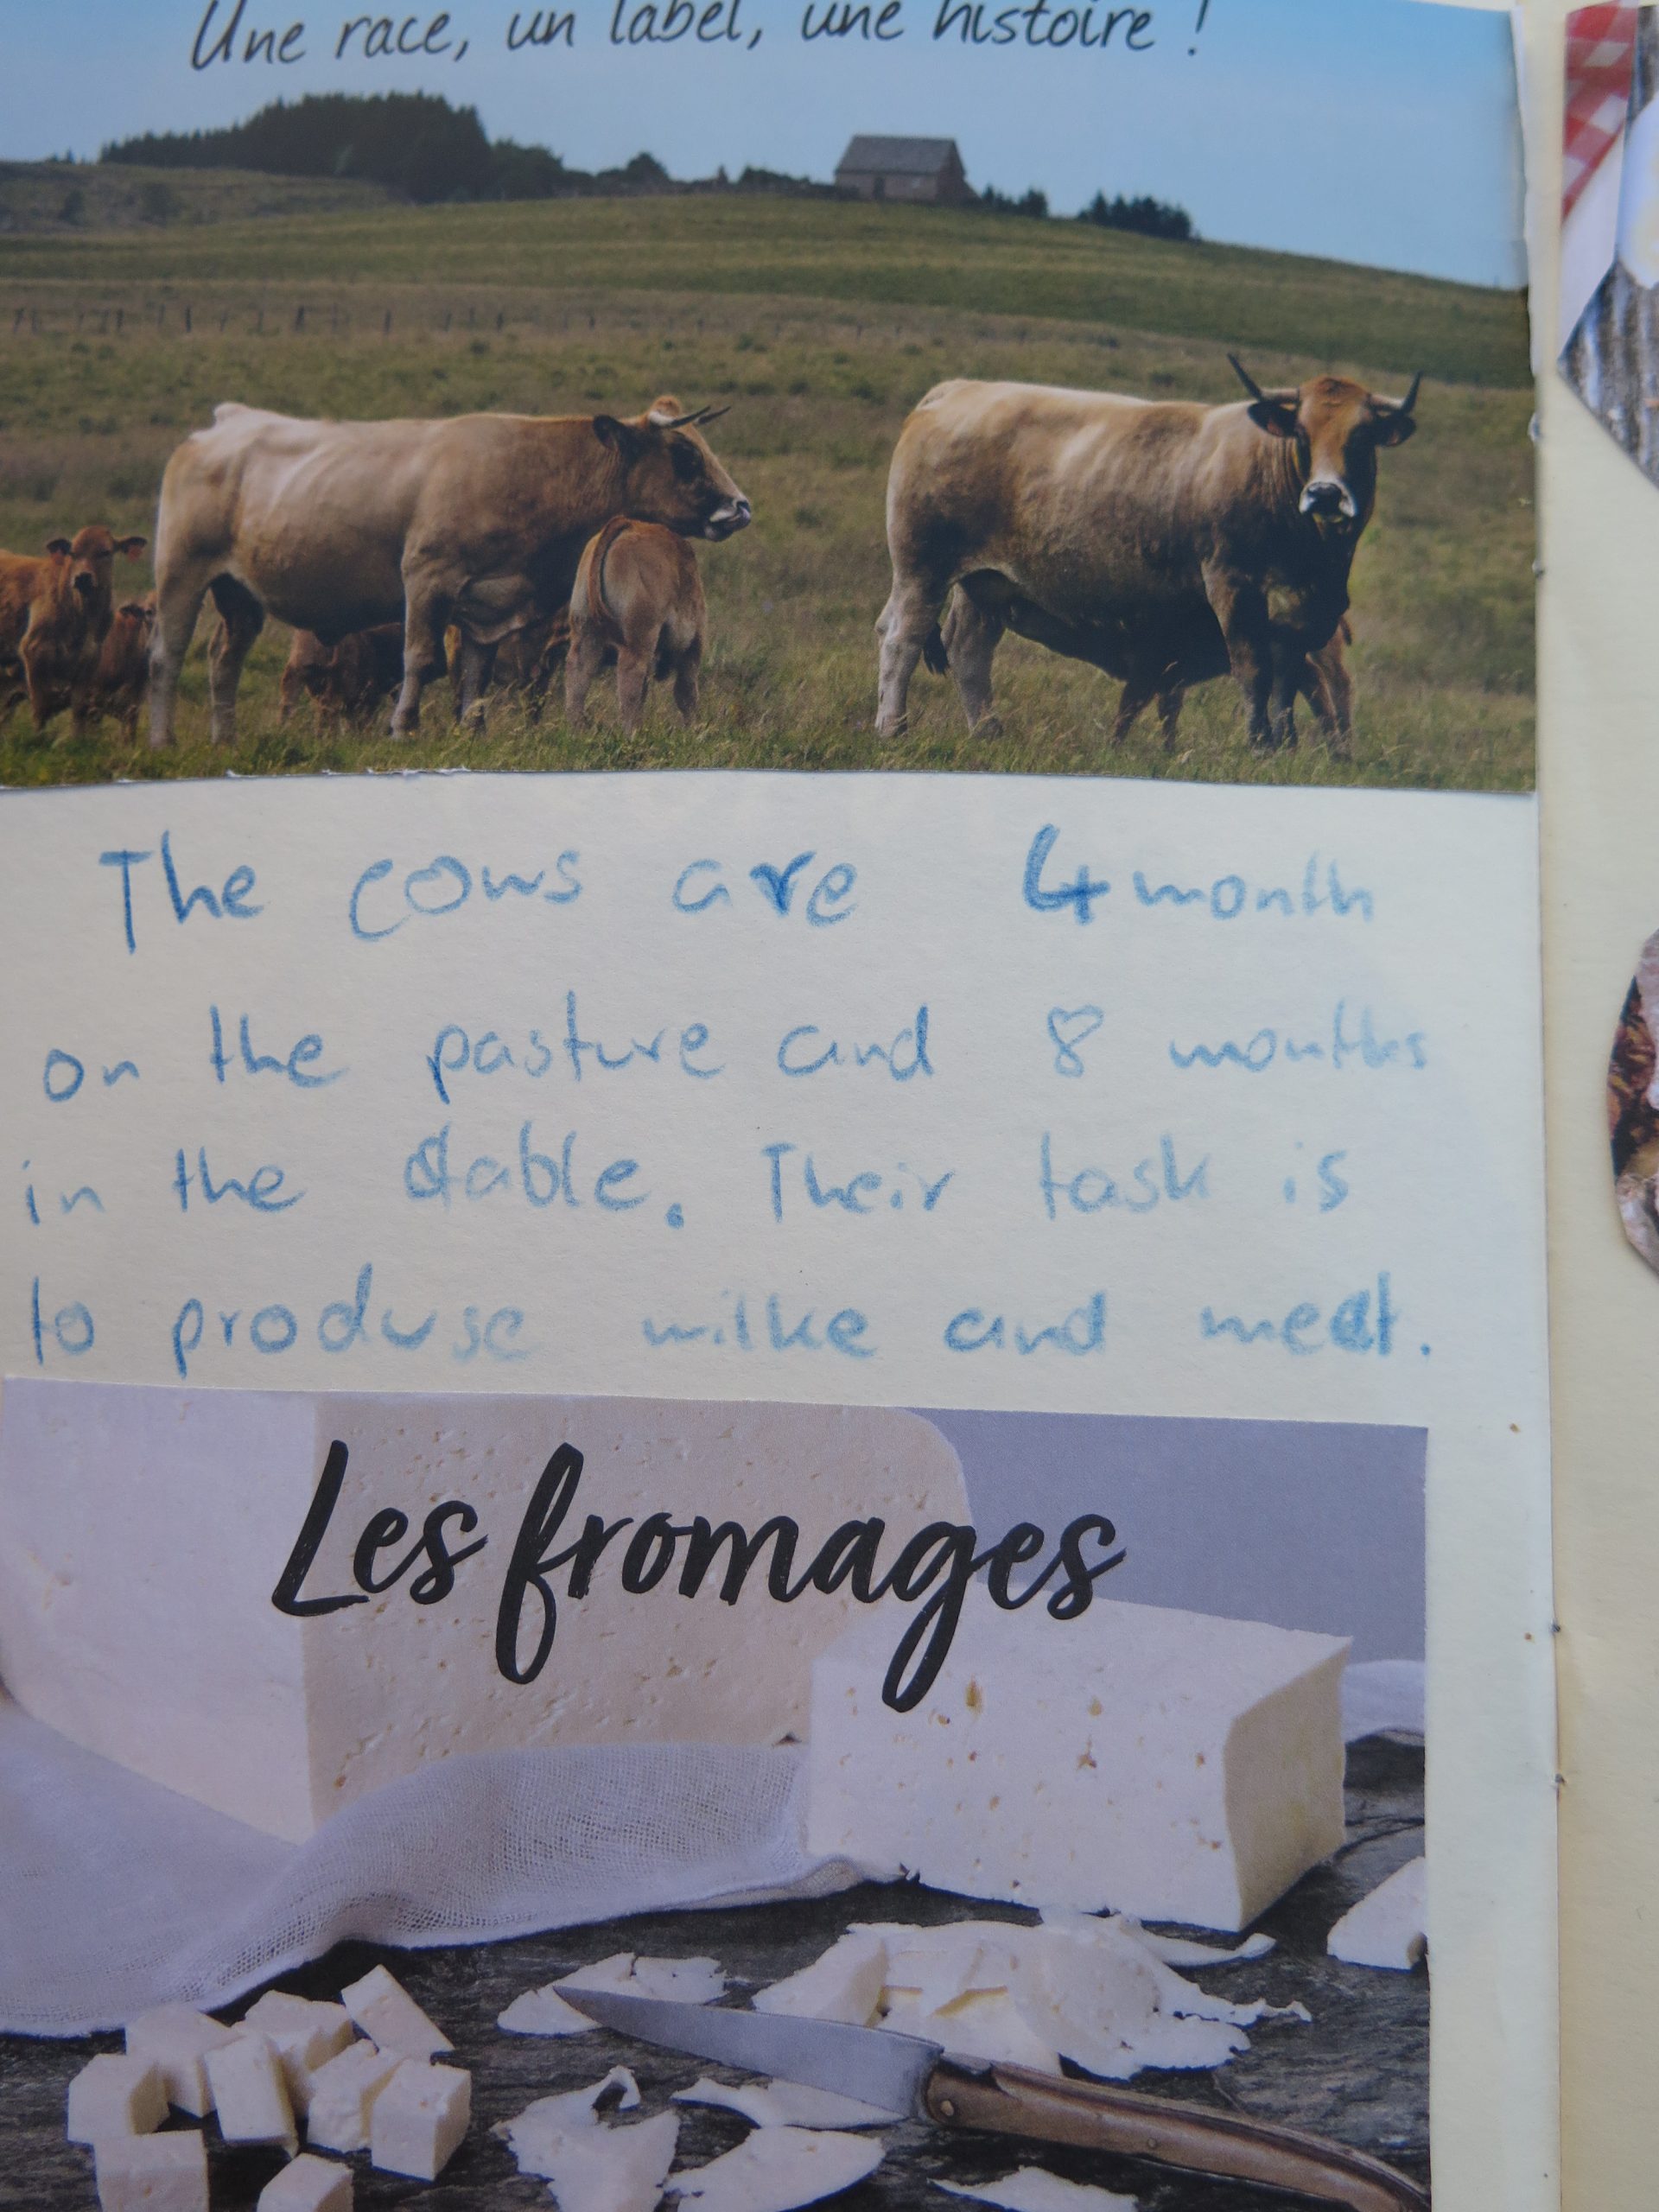 Une race, un label, une histoire !
The cows are 4 month
on the pasture and 8 months
in the stable. Their task is
to produse milke and meat.
Les fromages